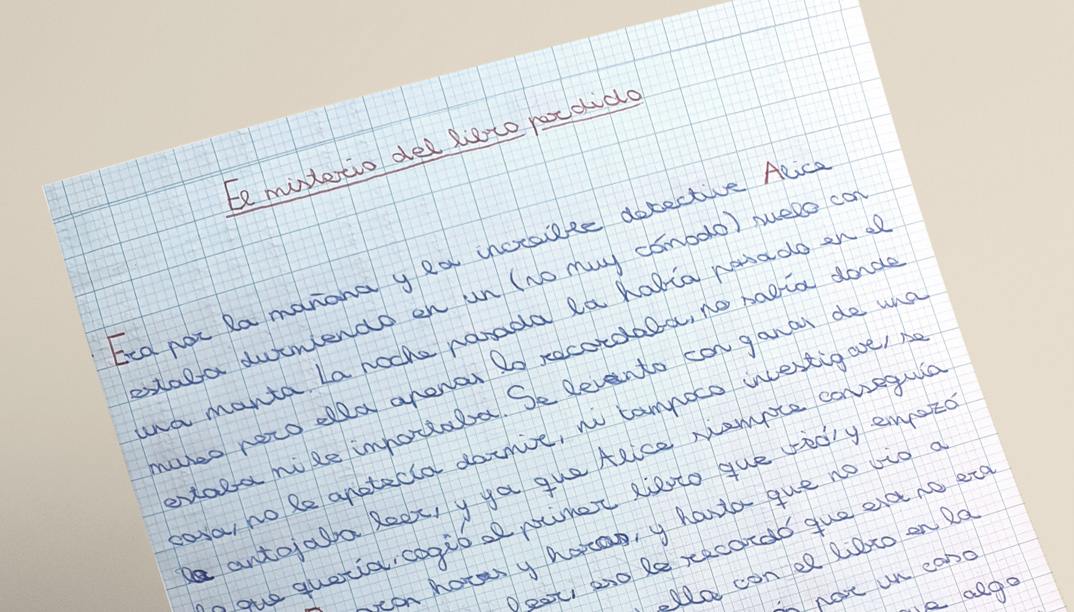 El misterio del libro perdido
Era por la mañana y la increíble detective Alice
estaba durmiendo en un (no muy cómodo) suelo con
una manta. La noche pasada la había pasado en el
museo pero ella apenas lo recordaba, no sabía donde
estaba ni le importaba. Se levanto con ganas de una
cosa, no le apetecía dormir, ni tampoco investigar, se
le antojaba leer, y ya que Alice siempre conseguía
lo que quería, cogió el primer libro que vió, y empezó
horas y horas, y hasta que no vio a
leer, eso le recordó que esa no era
ella con el libro en la
por un caso
algo